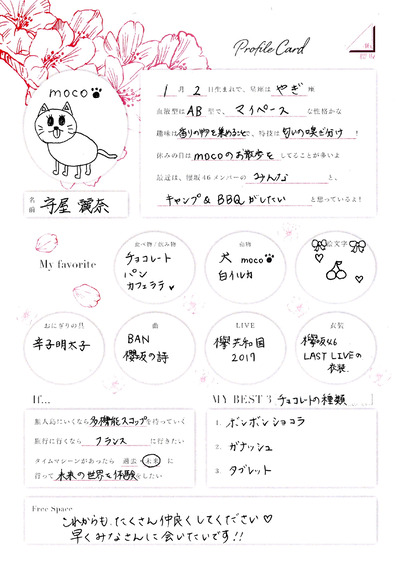 Profile Card
moco
名前 守屋 麗奈
1月2日生まれで、星座はやぎ座
血液型はAB型で、マイペースな性格かな
趣味は香りの物を集めることで、特技は匂いの嗅ぎ分け！
休みの日はmocoのお散歩をしてることが多いよ
最近は、櫻坂46メンバーのみんなと、
キャンプ&BBQがしたいと思っているよ！
My favorite
食べ物/飲み物
チョコレート
パン
カフェラテ♥
動物
犬 moco
白イルカ
絵文字
おにぎりの具
辛子明太子
曲
BAN
櫻坂の詩
LIVE
欅共和国
2017
衣装
欅坂46
LAST LIVEの
衣装
If...
無人島にいくなら多機能スコップを持っていく
旅行に行くならフランスに行きたい
タイムマシーンがあったら 過去・未来 に
行って未来の世界を体験をしたい
MY BEST 3 チョコレートの種類
1. ボンボンショコラ
2. ガナッシュ
3. タブレット
Free Space
これからも、たくさん仲良くしてください♡
早くみなさんに会いたいです!!